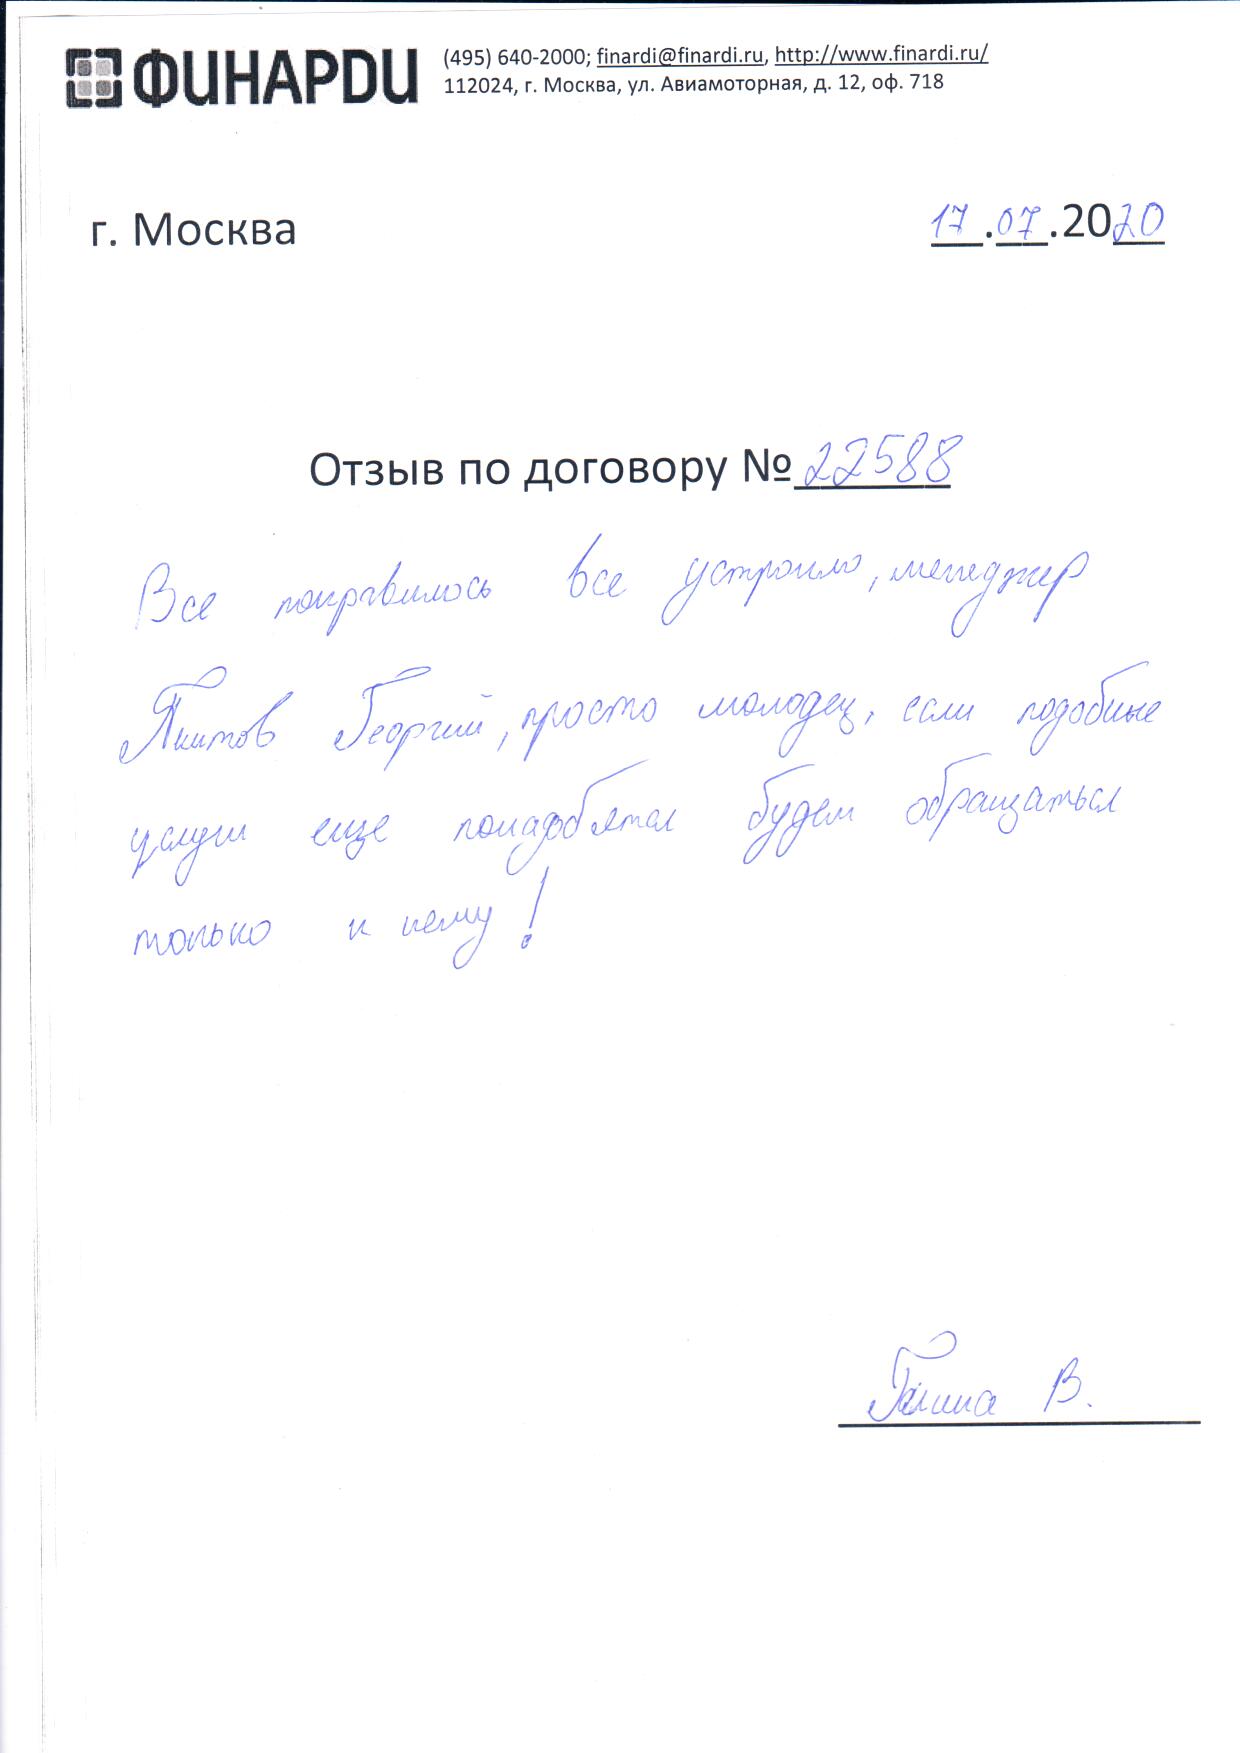 ФИНАРДИ
(495) 640-2000; finardi@finardi.ru, http://www.finardi.ru/
112024, г. Москва, ул. Авиамоторная, д. 12, оф. 718
г. Москва
17.07.2020
Отзыв по договору № 22588
Все понравилось все устроило, менеджер
Георгий, просто молодец, если подобные
услуги еще понадобятся будем обращаться
только к нему!
Галина В.